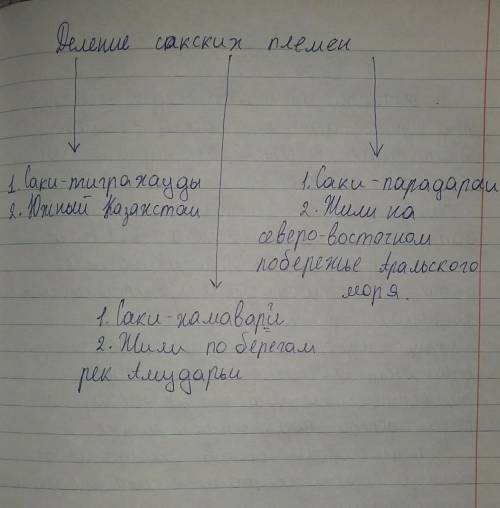 Деление сакских племен
1. Саки-тиграхауды
2. Южный Казахстан
1. Саки-парадараи
2. Жили на
северо-восточном
побережье Аральского
моря.
1. Саки-хамаварги
2. Жили по берегам
рек Амударьи